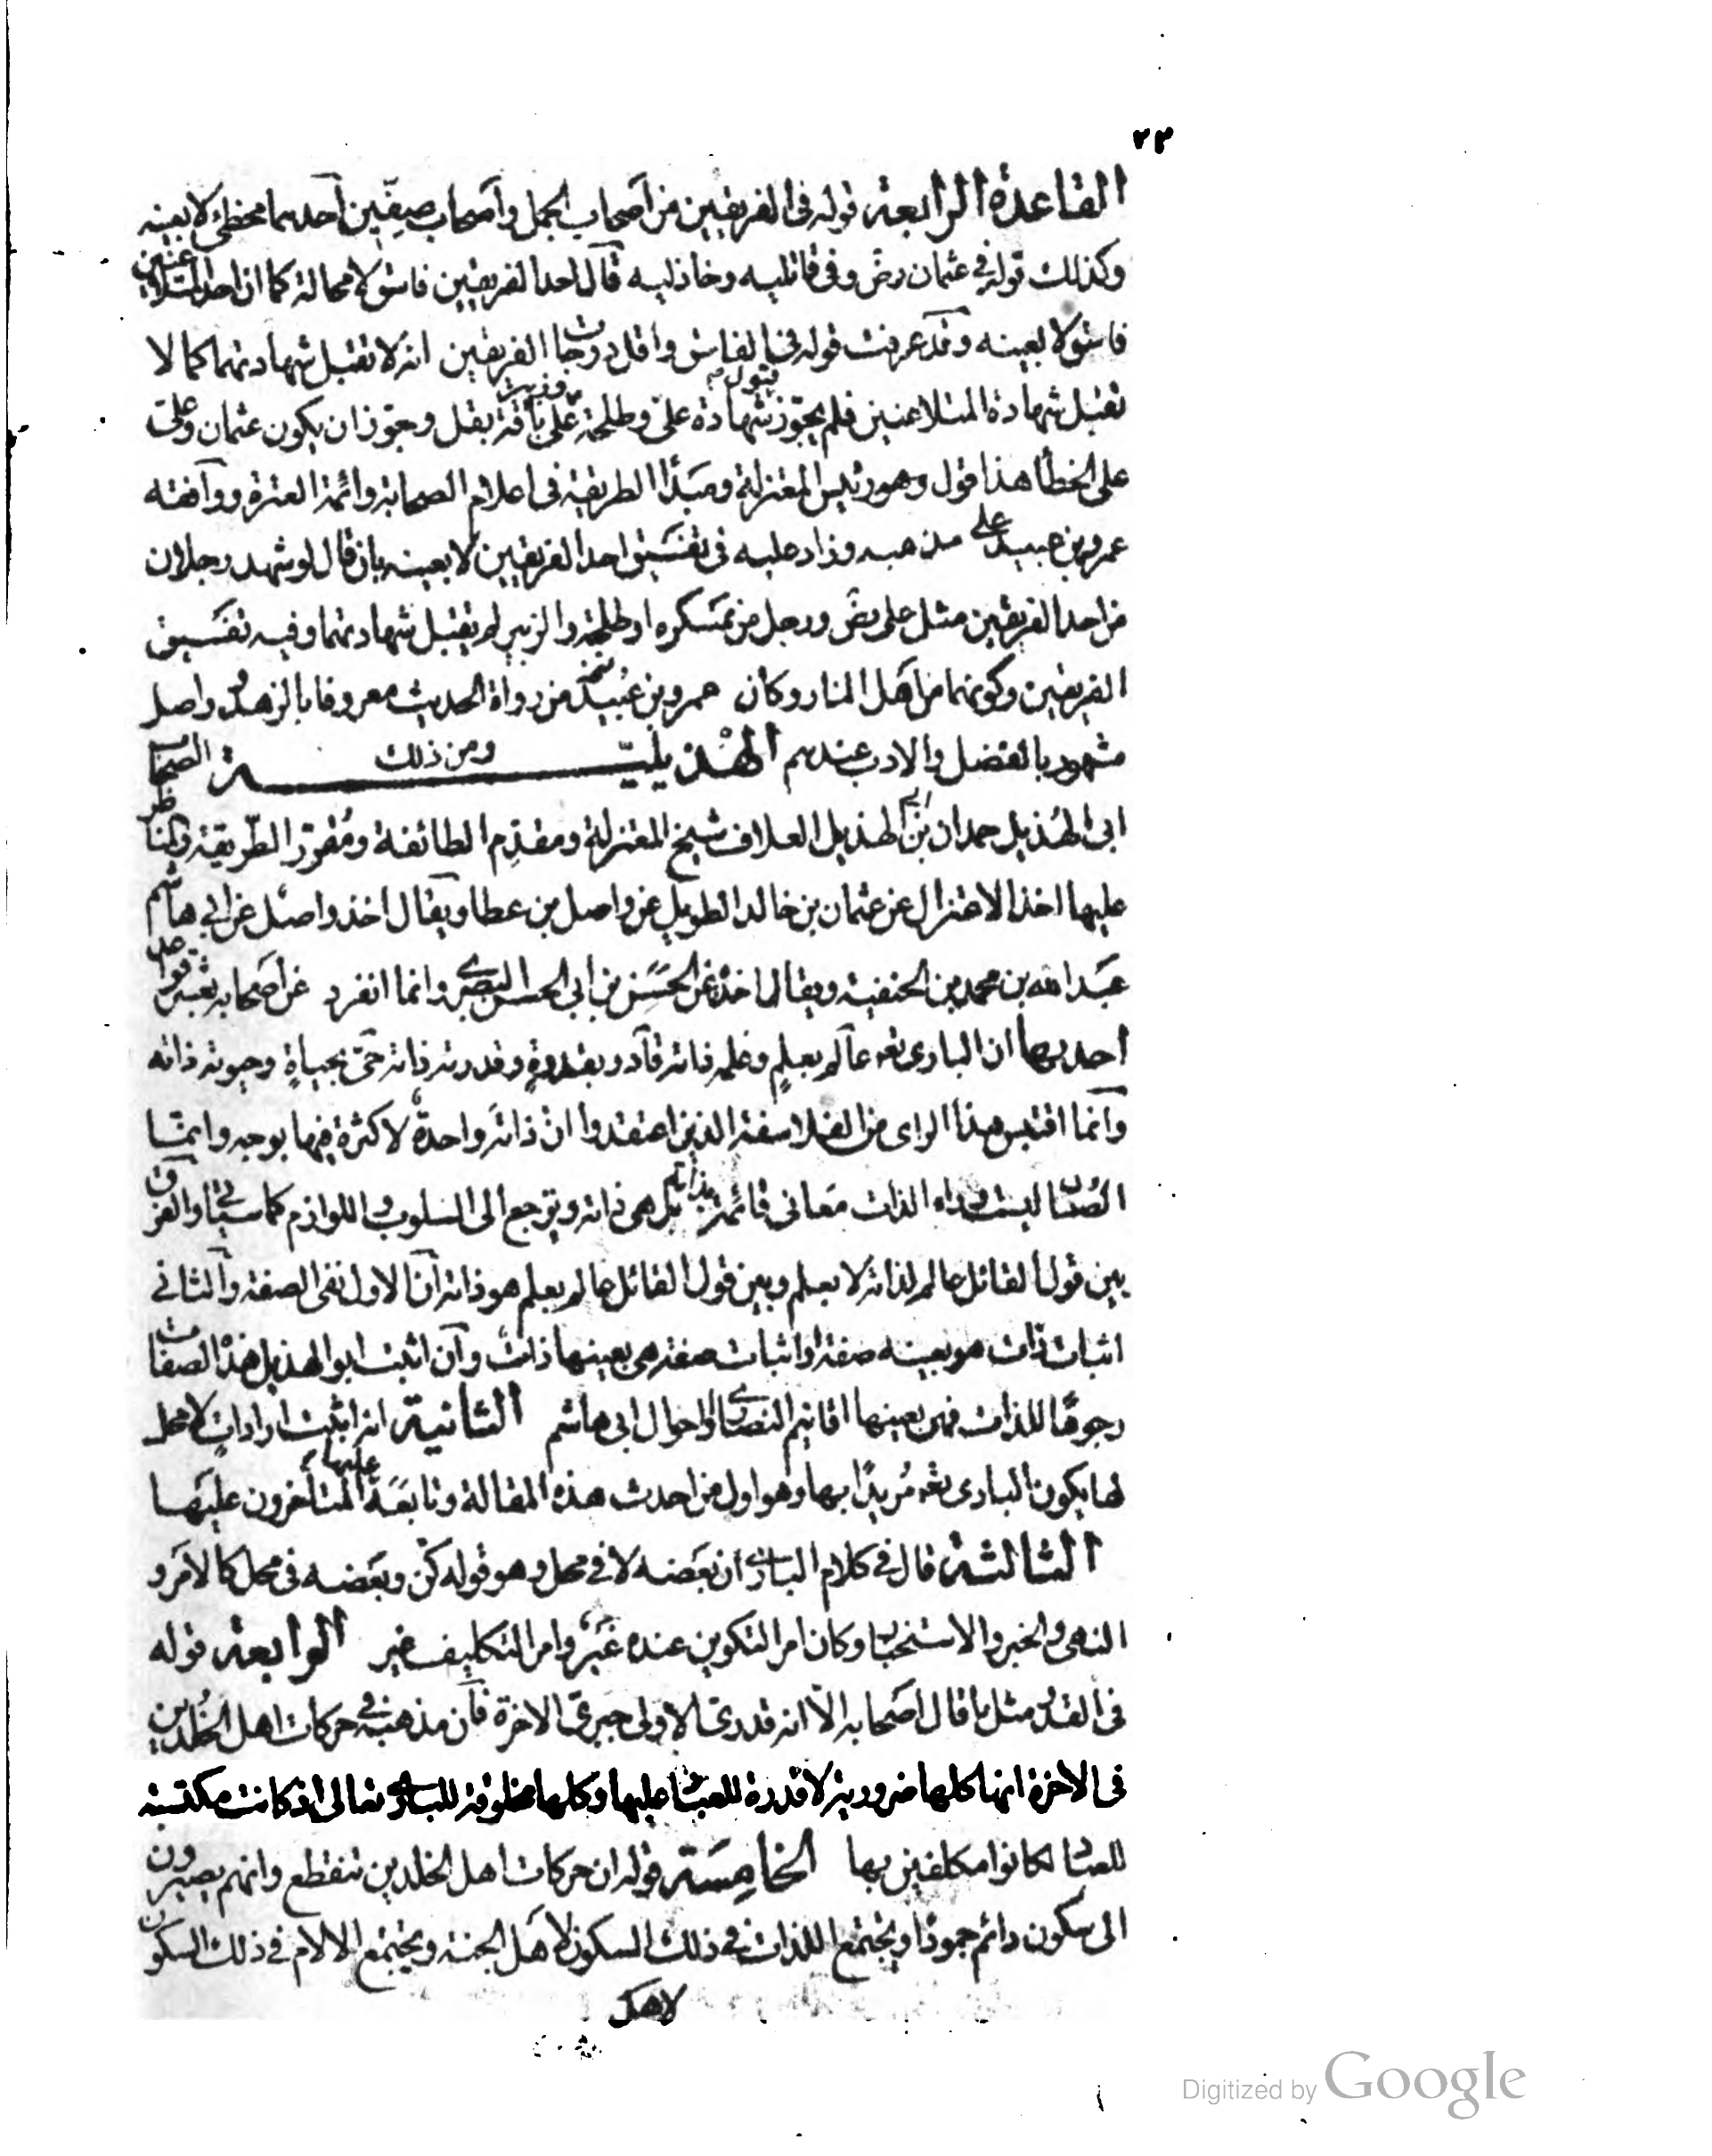 ٢٣
القاعدة الرابعة قوله فى الفريقين من أصحاب الجمل وأصحاب صفّين أحدهما مخطئ لا بعينه
وكذلك قوله فى عثمان رضّ وفى قاتليه وخاذليه قال احد الفريقين فاسق لا محالة كما ان احد المتلاعنين
فاسق لا بعينه وقد عرفت قوله فى الفاسق واقل درجات الفريقين انه لا تقبل شهادتهما كما لا
تقبل شهادة المتلاعنين فلم يجوّز قبول شهادة علىّ وطلحة وزبير على باقة بقل وجوّز ان يكون عثمان وعلىّ
على الخطأ هذا قول وهو رئيس المعتزلة ومبدأ الطريقة فى اعلام الصحابة وائمة العترة ووافقه
عمرو بن عبيد على مذهبه وزاد عليه فى تفسيق احد الفريقين لا بعينه بان قال لو شهد رجلان
من احد الفريقين مثل على رضّ ورجل من عسكره او طلحة والزبير لم يقبل شهادتهما وفيه تفسيق
الفريقين وكونهما من أهل النار وكان عمرو بن عُبيد من رواة الحديث معروفا بالزهد وواصل
مشهور بالفضل والادب عندهم الهُذيليّة ومن ذلك اصحاب
ابى الهُذيل حمدان بن ابى الهذيل العلاف شيخ المعتزلة ومقدِم الطائفة ومُقرّر الطّريقة والمناظر
عليها اخذ الاعتزال عن عثمان بن خالد الطويل عن واصل بن عطا ويقال اخذ واصل عن ابى هاشم
عبد الله بن محمد بن الحنفية ويقال اخذه عن الحسَن بن ابى الحسن البصرى وانما انفرد عن أصحابه بعشر قواعد
احديها ان البارى تعه عالم بعلمٍ وعلمه ذاته قادر بقدرةٍ وقدرته ذاته حىّ بحياةٍ وحيوته ذاته
وانما اقتبس هذا الراى من الفلاسفة الذين اعتقدوا ان ذاته واحدة لا كثرة فيها بوجه وانما
الصفات ليست وراء الذات معانى قائمة بذاته بل هى ذاته وترجع الى السلوب واللوازم كما سيأتى والفرق
بين قول القائل عالم لذاته لا بعلم وبين قول القائل عالم بعلم هو ذاته أن الاول نفى الصفة والثانى
اثبات ذات هو بعينه صفة او اثبات صفة هى بعينها ذات وان اثبت ابو الهذيل هذه الصفات
وجوهًا للذات فهى بعينها اقانيم النصارى او احوال ابى هاشم الثانية انه اثبت ارادات لا محل
لها يكون البارى تعه مُريدًا بها وهو اول من احدث هذه المقالة وتابعَه عليها المتأخرون عليها
الثالثة قال فى كلام البارى ان بعضه لا فى محل وهو قوله كن وبعضه فى محل كالامر و
النهى والخبر والاستخبار وكان امر التكوين عنده غير وامر التكليف غير الرابعة قوله
فى القدر مثل ما قال اصحابه الّا انه قدرىّ الاولى جبرىّ الاخرة فان مذهبه فى حركات اهل الخُلدين
فى الاخرة انها كلها ضرورية لا قدرة للعباد عليها وكلها مخلوقة للبارى تعالى اذ كانت مكتسبة
للعباد لكانوا مكلفين بها الخامِسَة قوله ان حركات اهل الخلدين تنقطع وانهم يصيرون
الى سكون دائم جمودًا ويجتمع اللذات فى ذلك السكون لاهل الجنة ويجتمع الالام فى ذلك السكون
لاهل
Digitized by Google